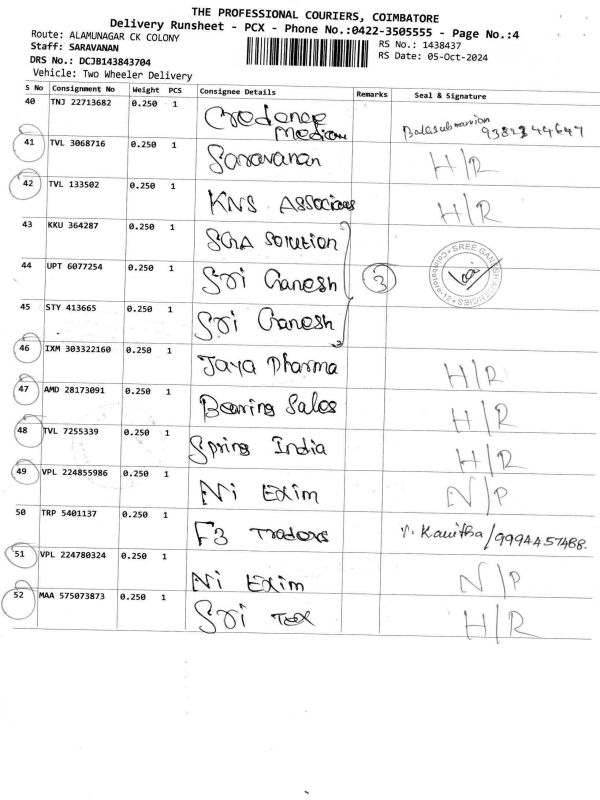 THE PROFESSIONAL COURIERS, COIMBATORE
Delivery Runsheet - PCX - Phone No.:0422-3505555 - Page No.:4
Route: ALAMUNAGAR CK COLONY
Staff: SARAVANAN
RS No.: 1438437
DRS No.: DCJB143843704
RS Date: 05-Oct-2024
Vehicle: Two Wheeler Delivery
S No Consignment No Weight PCS Consignee Details Remarks Seal & Signature
40 TNJ 22713682 0.250 1 Credence Balasubramanian
9382344647
41 TVL 3068716 0.250 1 Saravanan H/R
42 TVL 133502 0.250 1 KNS Associates H/R
43 KKU 364287 0.250 1 SGA Solution
44 UPT 6077254 0.250 1 Sri Ganesh 3 SREE GANESH AGENCIES Coimbatore-12
45 STY 413665 0.250 1 Sri Ganesh
46 IXM 303322160 0.250 1 Jaya Pharma H/R
47 AMD 28173091 0.250 1 Bearing Sales H/R
48 TVL 7255339 0.250 1 Spring India H/R
49 VPL 224855986 0.250 1 Ni Exim N/P
50 TRP 5401137 0.250 1 F3 Traders V. Kavitha/9994457468.
51 VPL 224780324 0.250 1 Ni Exim N/P
52 MAA 575073873 0.250 1 Sri Tex H/R